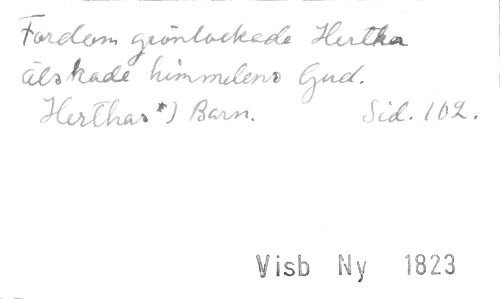 Fordom grönlockade Hertha
älskade himmelens Gud.
Herthas*) Barn. Sid. 102.
Visb Ny 1823